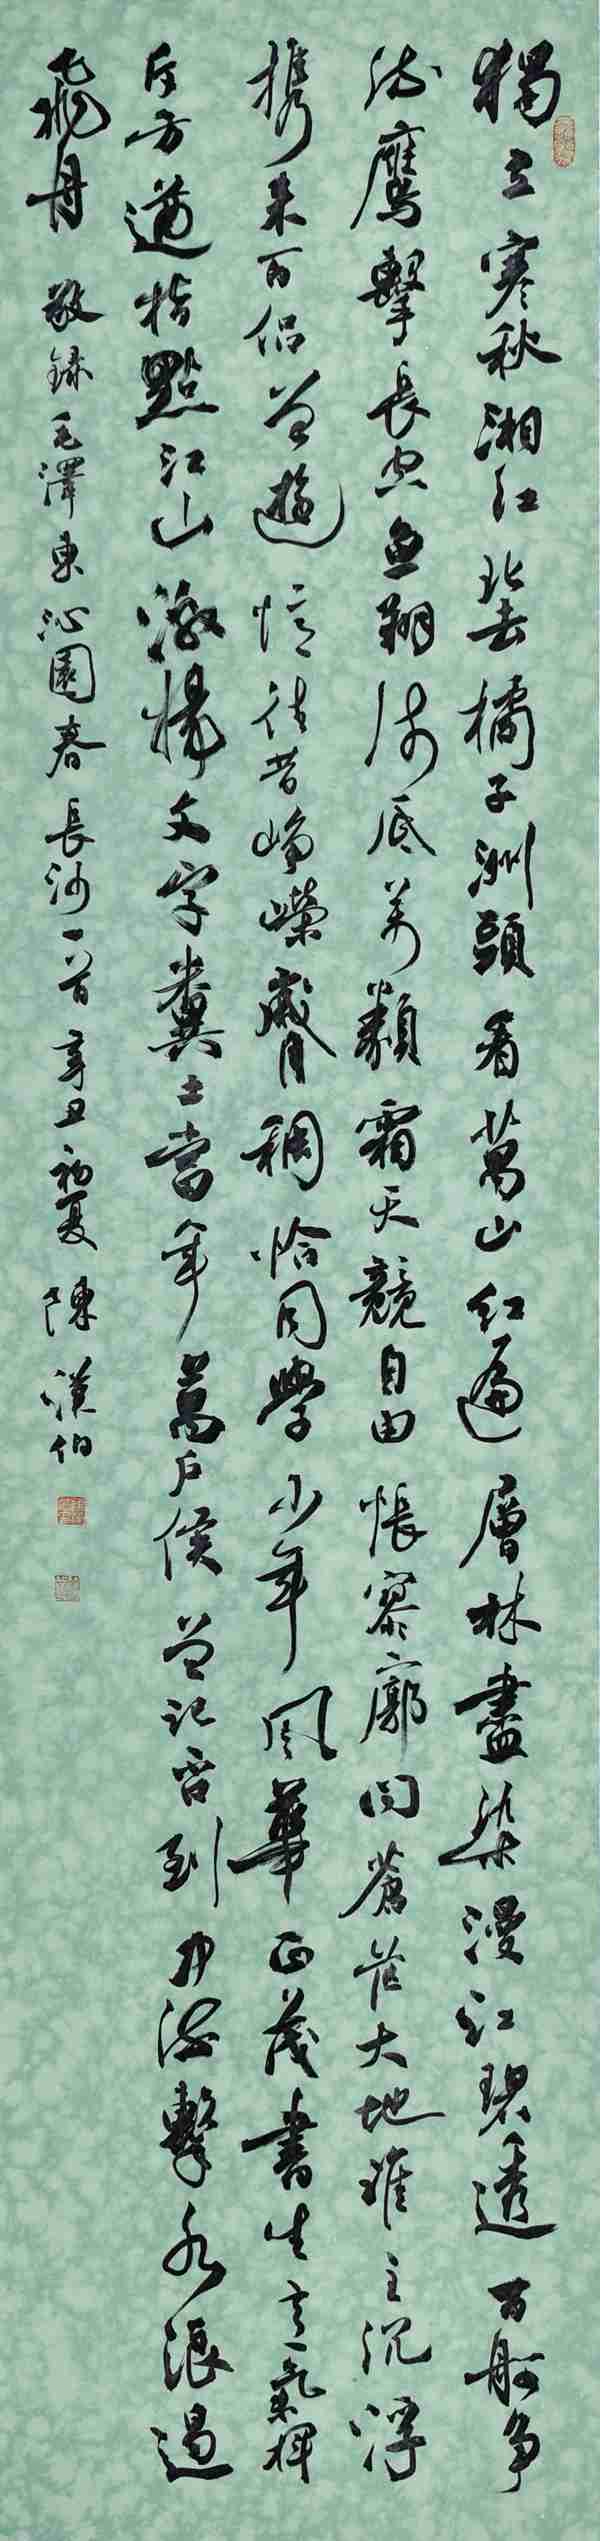 獨立寒秋湘江北去橘子洲頭看萬山紅遍層林盡染漫江碧透百舸争
流鷹擊長空魚翔淺底萬類霜天競自由悵寥廓問蒼茫大地誰主沉浮
携来百侣曾遊憶往昔崢嶸歲月稠恰同學少年風華正茂書生意氣揮
斥方遒指點江山激揚文字糞土當年萬户侯曾記否到中流擊水浪遏
飛舟 敬録毛澤東沁園春長沙一首辛丑初夏陳漢伯